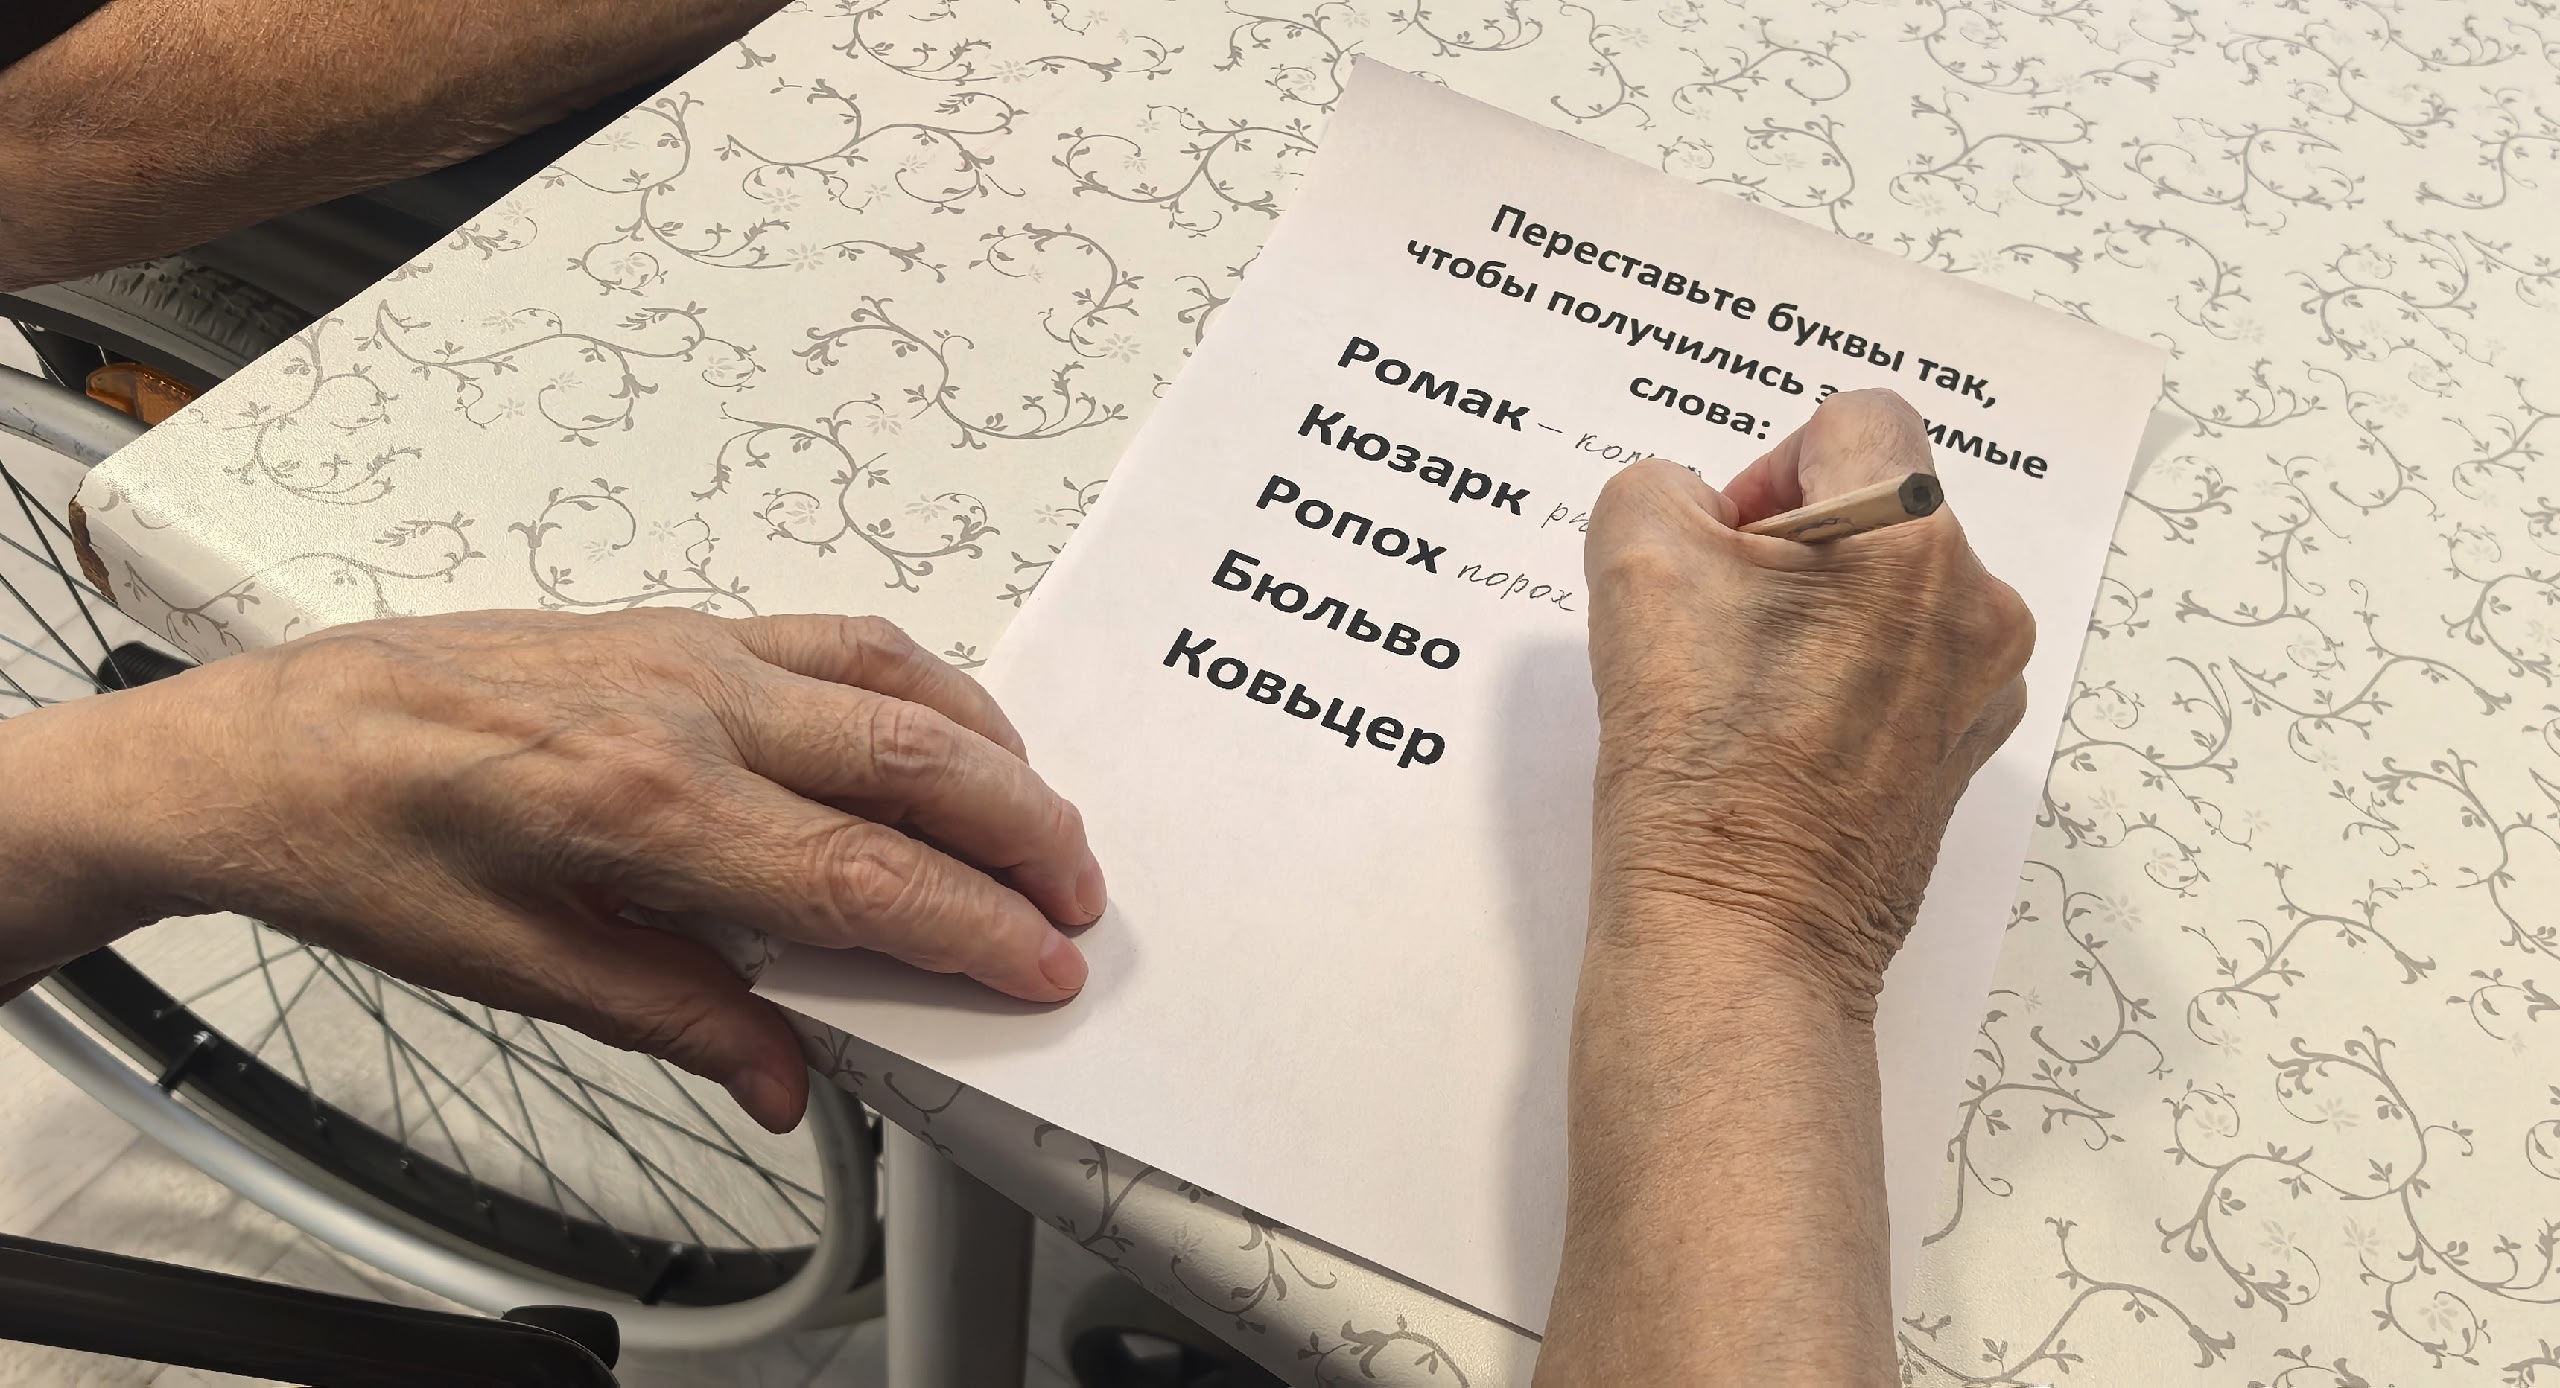 Переставьте буквы так,
чтобы получились
слова:
Ромак –
Кюзарк
Ропох порох
Бюльво
Ковьцер